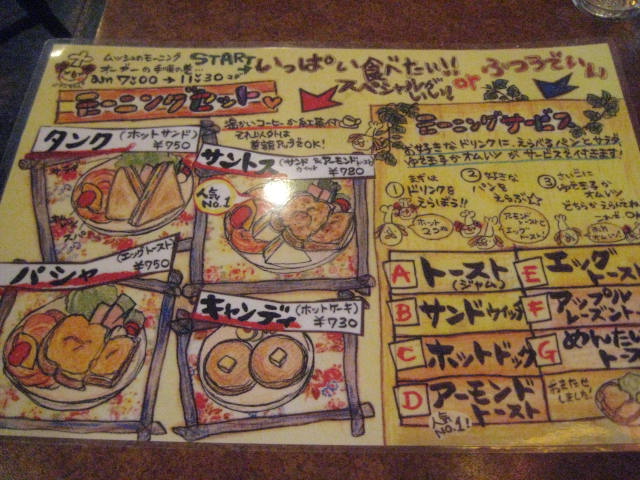 ムッシュのモーニング
オーダーの手順の巻
START
am 7:00 → 11:30
いっぱい食べたい!!
スペシャルがいい!
or
ふつうでいい
モーニングセット
温かいコーヒーか紅茶付
それ以外は
差額でOK!
タンク (ホットサンド)
¥750
サントス
¥780
人気
NO.1
パシャ (エッグトースト)
¥750
キャンディ (ホットケーキ)
¥730
モーニングサービス
お好きなドリンクに、えらべるパンとサラダ、
ゆで玉子かオムレツがサービスで付きます!
① まずは
ドリンクを
えらぼう!!
② 好きな
パンを
えらぶ☆
③ さいごに
ゆで玉子か
オムレツ
どちらかえらんでね
アーモンドトースト
エッグトースト
A トースト
(ジャム)
B サンドウィッチ
C ホットドッグ
D アーモンド
トースト
人気
NO.1!
E エッグ
トースト
F アップル
レーズン
G めんたい
おまたせ
しました!